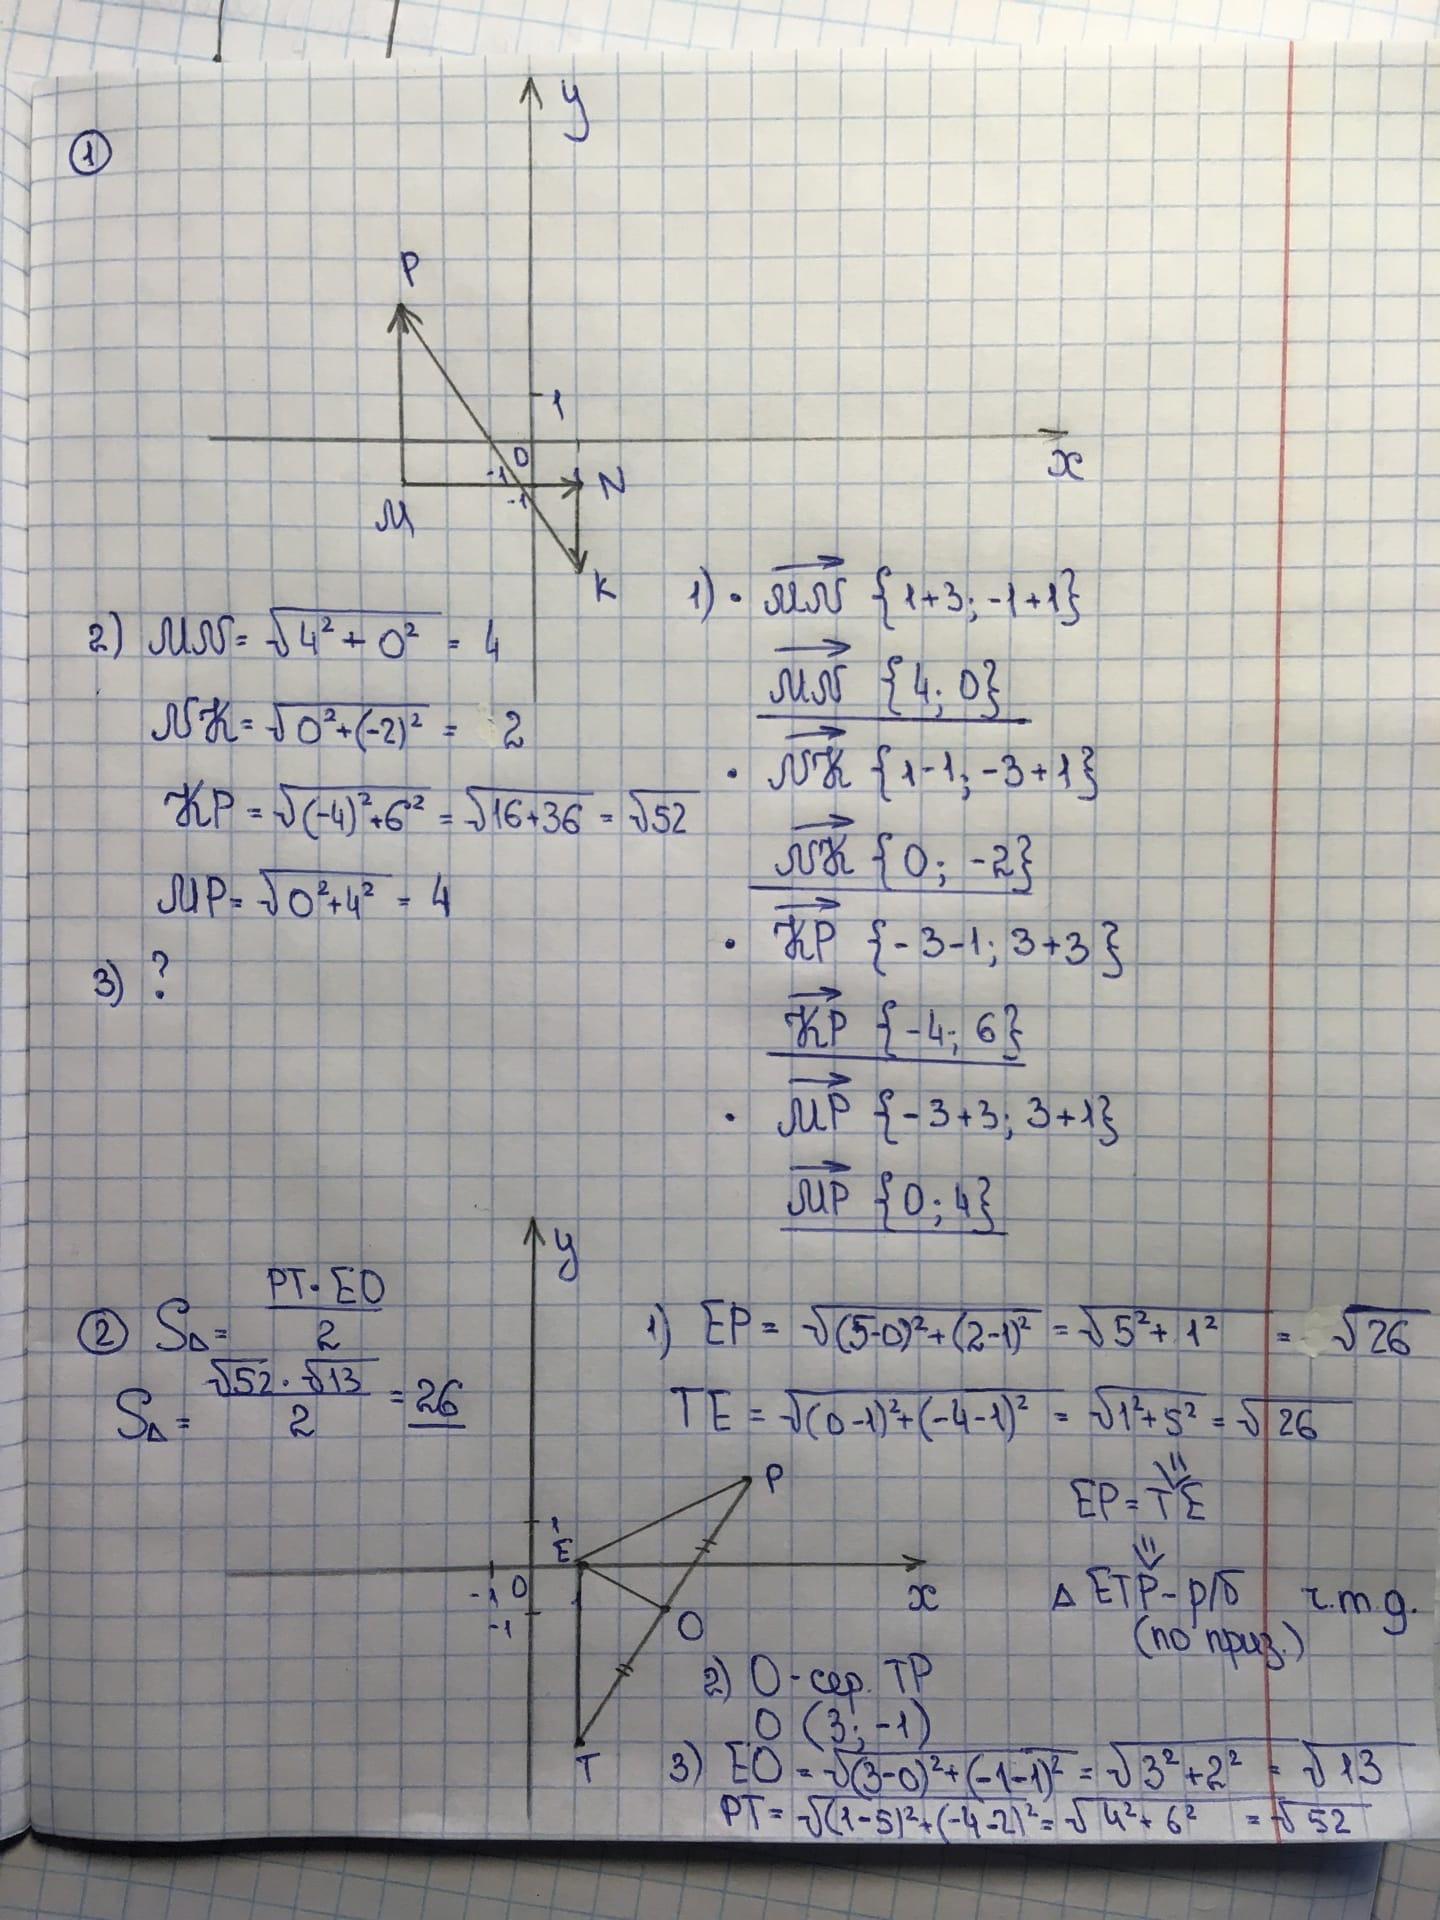 ①
y
P
1
0
x
-1
-1
N
M
K
1) • MN {1+3; -1+1}
MN {4; 0}
• NK {1-1; -3+1}
NK {0; -2}
• KP {-3-1; 3+3}
KP {-4; 6}
• MP {-3+3; 3+1}
MP {0; 4}
2) MN = √4² + 0² = 4
NK = √0²+(-2)² = 2
KP = √(-4)²+6² = √16+36 = √52
MP = √0²+4² = 4
3) ?
② S△ = PT·EO / 2
S△ = √52·√13 / 2 = 26
y
P
1
E
-1
0
-1
x
O
T
1) EP = √(5-0)²+(2-1)² = √5²+1² = √26
TE = √(0-1)²+(-4-1)² = √1²+5² = √26
⇓
EP = TE
⇓
△ ETP - р/б ч.т.д.
(по приз.)
2) O - сер. TP
O (3; -1)
3) EO = √(3-0)²+(-1-1)² = √3²+2² = √13
PT = √(1-5)²+(-4-2)² = √4²+6² = √52